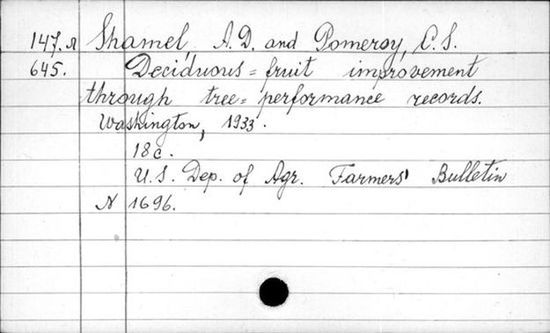 147.A Shamel, A.D. and Pomeroy, C.S.
645. Deciduous = fruit improvement
through tree = performance records.
Washington, 1933.
18 c.
U.S. Dep. of Agr. Farmers' Bulletin
N 1696.